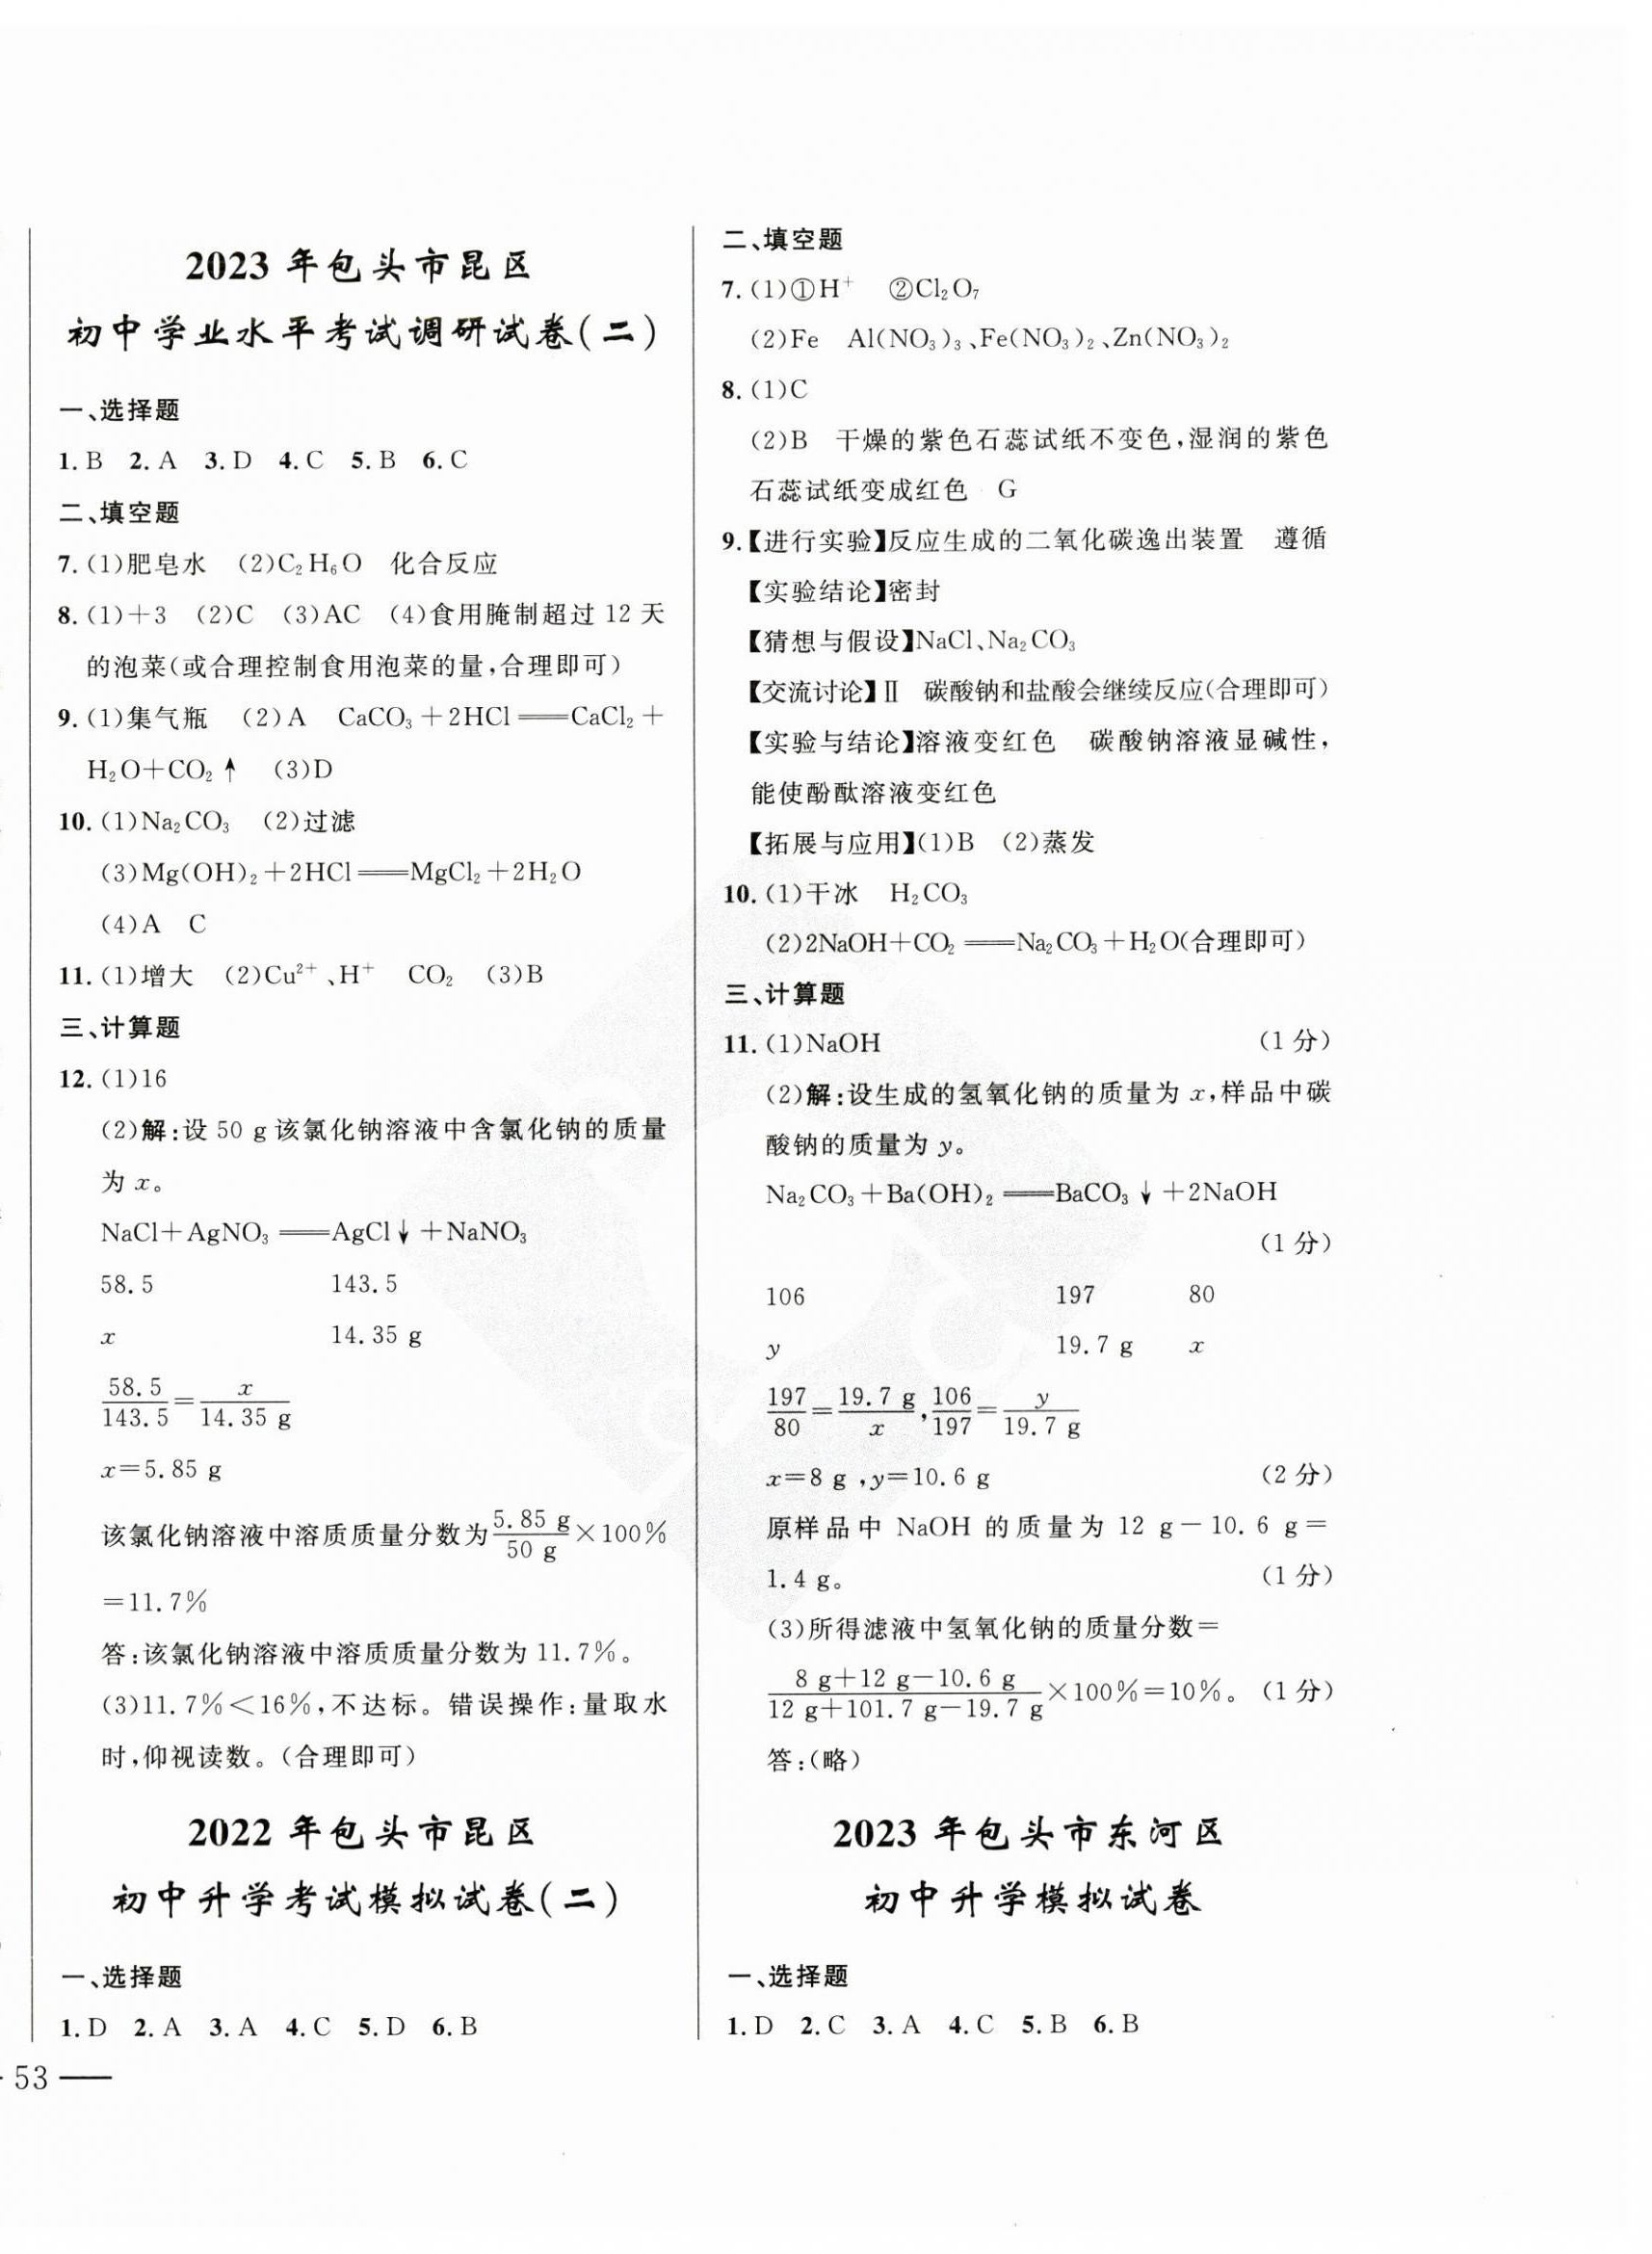 2023 年包头市昆区
初中学业水平考试调研试卷(二)
一、选择题
1. B 2. A 3. D 4. C 5. B 6. C
二、填空题
7. (1)肥皂水 (2)C₂H₆O 化合反应
8. (1)+3 (2)C (3)AC (4)食用腌制超过 12 天
的泡菜(或合理控制食用泡菜的量,合理即可)
9. (1)集气瓶 (2)A CaCO₃+2HCl══CaCl₂+
H₂O+CO₂↑ (3)D
10. (1)Na₂CO₃ (2)过滤
(3)Mg(OH)₂+2HCl══MgCl₂+2H₂O
(4)A C
11. (1)增大 (2)Cu²⁺、H⁺ CO₂ (3)B
三、计算题
12. (1)16
(2)解:设 50 g 该氯化钠溶液中含氯化钠的质量
为 x。
NaCl+AgNO₃══AgCl↓+NaNO₃
58.5 143.5
x 14.35 g
58.5/143.5=x/14.35 g
x=5.85 g
该氯化钠溶液中溶质质量分数为5.85 g/50 g×100%
=11.7%
答:该氯化钠溶液中溶质质量分数为 11.7%。
(3)11.7%<16%,不达标。错误操作:量取水
时,仰视读数。(合理即可)
2022 年包头市昆区
初中升学考试模拟试卷(二)
一、选择题
1. D 2. A 3. A 4. C 5. D 6. B
二、填空题
7. (1)①H⁺ ②Cl₂O₇
(2)Fe Al(NO₃)₃、Fe(NO₃)₂、Zn(NO₃)₂
8. (1)C
(2)B 干燥的紫色石蕊试纸不变色,湿润的紫色
石蕊试纸变成红色 G
9.【进行实验】反应生成的二氧化碳逸出装置 遵循
【实验结论】密封
【猜想与假设】NaCl、Na₂CO₃
【交流讨论】Ⅱ 碳酸钠和盐酸会继续反应(合理即可)
【实验与结论】溶液变红色 碳酸钠溶液显碱性,
能使酚酞溶液变红色
【拓展与应用】(1)B (2)蒸发
10. (1)干冰 H₂CO₃
(2)2NaOH+CO₂══Na₂CO₃+H₂O(合理即可)
三、计算题
11. (1)NaOH (1 分)
(2)解:设生成的氢氧化钠的质量为 x,样品中碳
酸钠的质量为 y。
Na₂CO₃+Ba(OH)₂══BaCO₃↓+2NaOH
(1 分)
106 197 80
y 19.7 g x
197/80=19.7 g/x,106/197=y/19.7 g
x=8 g ,y=10.6 g (2 分)
原样品中 NaOH 的质量为 12 g-10.6 g=
1.4 g。 (1 分)
(3)所得滤液中氢氧化钠的质量分数=
8 g+12 g-10.6 g/12 g+101.7 g-19.7 g×100%=10%。 (1 分)
答:(略)
2023 年包头市东河区
初中升学模拟试卷
一、选择题
1. D 2. C 3. A 4. C 5. B 6. B
53